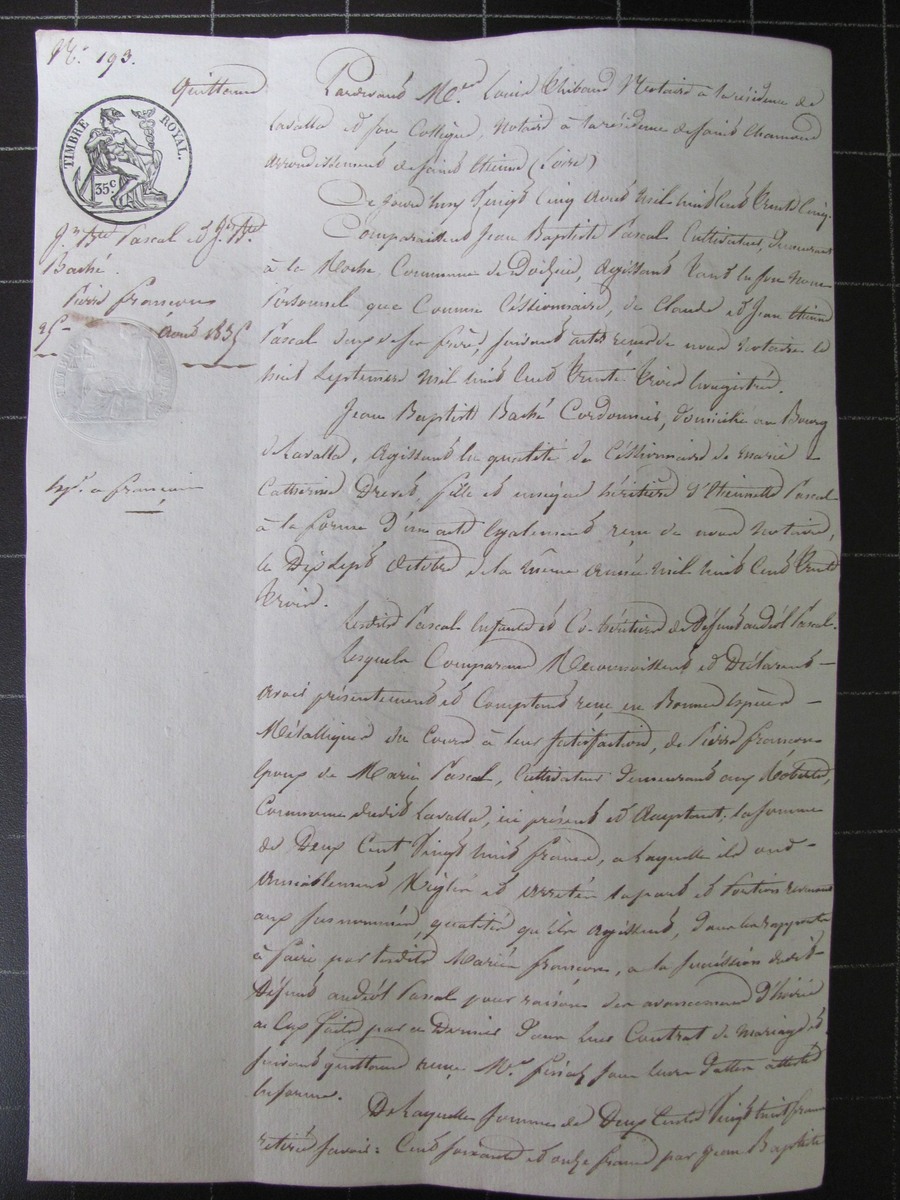 N°. 193.
Quittance
TIMBRE ROYAL.
35 c.
Jn. Bte Pascal et Jn. Bte
Baché.
Pierre françon
25 Avril 1835
Exp. a françon
Pardevant Me. Louis Thibaud Notaire à la résidence de
Lavalla et son Collègue, Notaire à la résidence de Saint Chamond
arrondissement de Saint Etienne (Loire)
De jourd'huy Vingt Cinq Avril Mil huit Cent Trente Cinq.
Comparaissent Jean Baptiste Pascal Cultivateur, demeurant
à la Roche Commune de Doizieu, agissant tant en son nom
Personnel que Comme Céssionnaire, de Claude et Jean Etienne
Pascal deux de ses frères, suivant actes reçus de nous Notaires le
huit Septembre Mil huit Cent Trente Trois Enregistrés.
Jean Baptiste Baché Cordonnier, domicilié au Bourg
de Lavalla, Agissant en qualité de Céssionnaire de Marie
Catherine Drevet, fille et unique héritière d'Etiennette Pascal
à la forme d'un acte Egalement reçu de nous Notaires,
le Dix Sept Octobre de la même Année Mil huit Cent Trente
Trois.
Lesdits Pascal Enfants et Co-héritiers de Défunt andéol Pascal.
Lesquels Comparants Reconnaissent et Déclarent
avoir présentement et Comptant reçu en Bonnes Espèces
Métalliques du Cours à leur Satisfaction, de Pierre françon
Epoux de Marie Pascal, Cultivateur demeurant aux
Commune dudit Lavalla, ici présent et Acceptant. la somme
de Deux Cent Vingt huit francs, a laquelle ils ont
amiablement Réglé et arretés la part et Portion revenant
aux susnommés, qualités qu'ils Agissent, dans les rapports
à faire par lesdits Mariés françon, a la Succession dudit
Défunt andéol Pascal pour raison des avancements d'hoirie
a Eux faits par ce Dernier dans leur Contrat de Mariage et
suivant quittance reçue Me. finaz sans livrer d'autre
Informe.
De Laquelle somme de Deux Cents Vingt huit francs
retirés savoir: Cent soixante et onze francs par Jean Baptiste